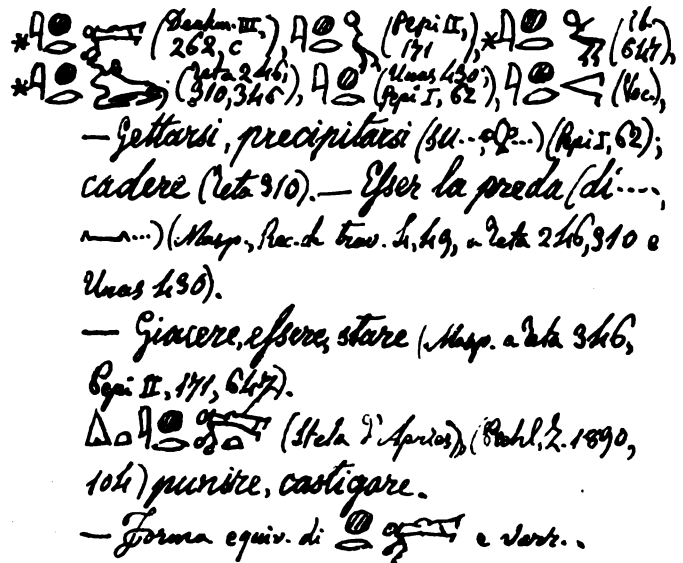 * 𓇋𓐍𓂋 (Denkm. III, 262, c), 𓇋𓐍𓂋 (Pepi II, 171), * 𓇋𓐍𓂋 (ib. 647),
* 𓇋𓐍𓂋 ; (Teta 246, 310, 346), 𓇋𓐍𓂋 (Unas 430; Pepi I, 62), 𓇋𓐍𓂋 (Voc.),
— Gettarsi, precipitarsi (su..., ...) (Pepi I, 62);
cadere (Teta 310). — Esser la preda (di....,
𓈖...) (Masp., Rec. de trav. 4, 49, a Teta 246, 310 e
Unas 430).
— Giacere, essere, stare (Masp. a Teta 346,
Pepi II, 171, 647).
𓇋𓐍𓂋 (Stela d'Apries), (Piehl, Z. 1890,
104) punire, castigare.
— Forma equiv. di 𓐍𓂋 e varr..